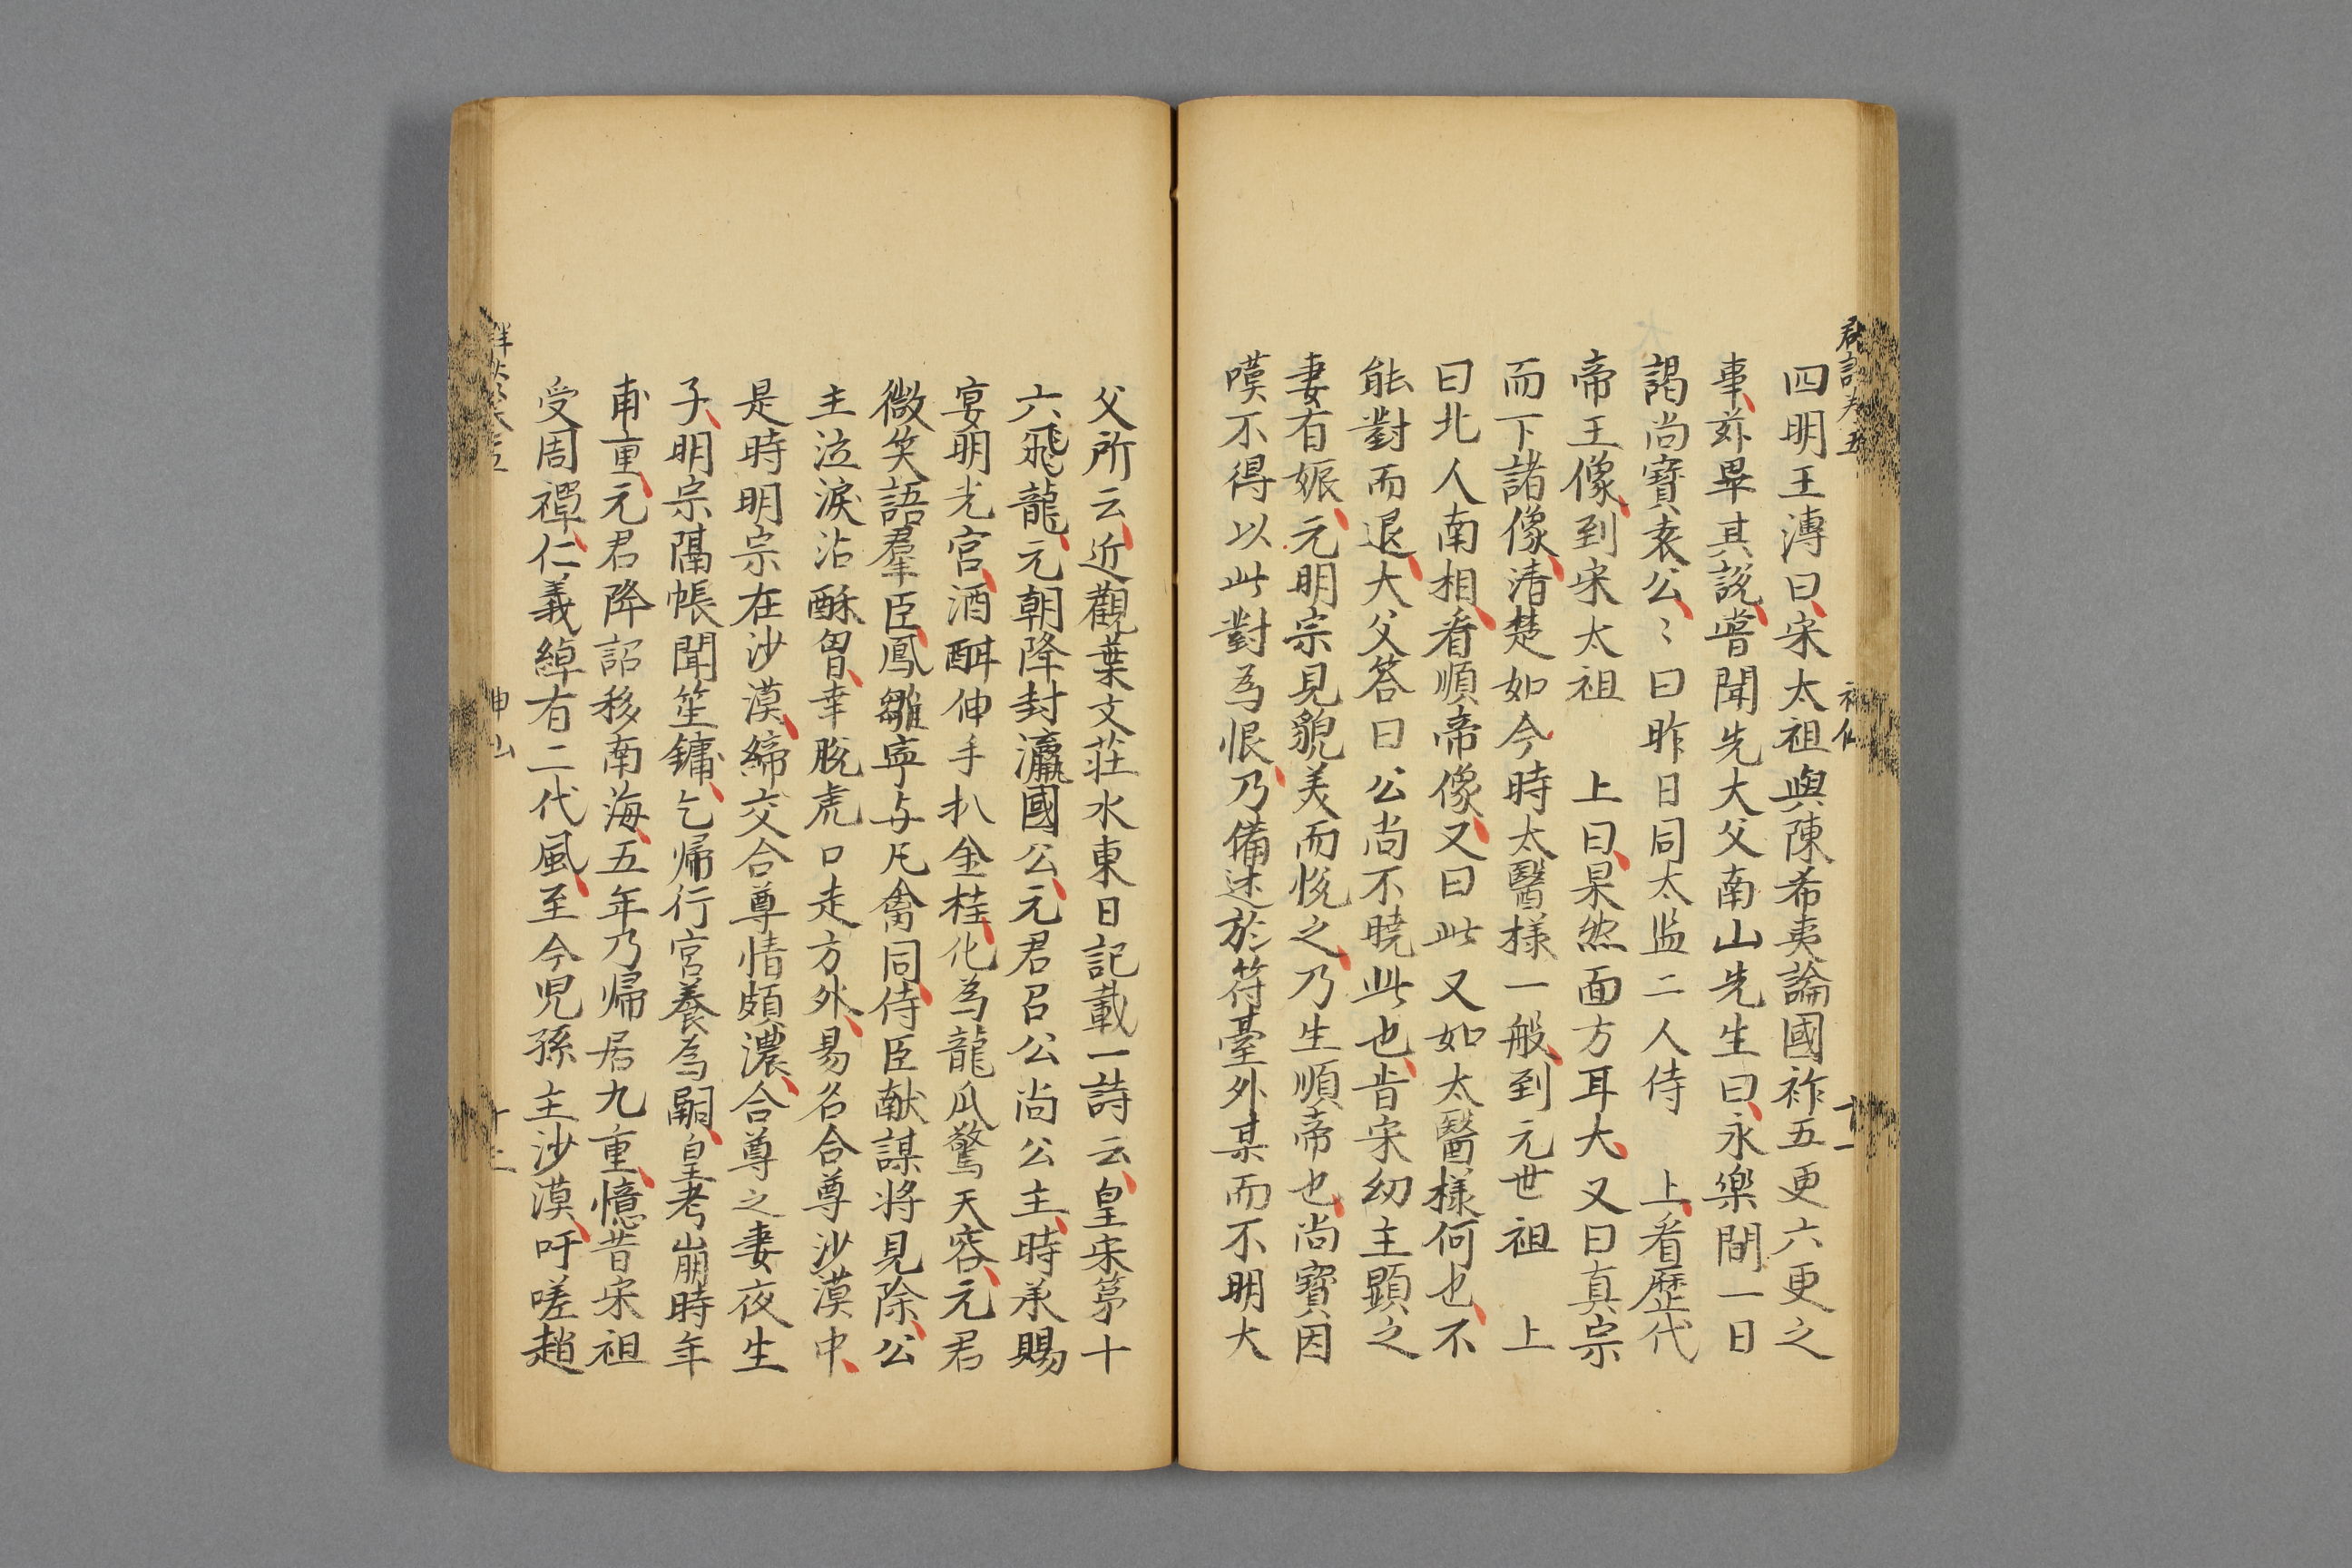 四明王溥曰宋太祖與陳希夷論國祚五更六更之
事茲畢其說嘗聞先大父南山先生曰永樂間一日
謁尚寶袁公〻曰昨日同太监二人侍 上看歷代
帝王像到宋太祖 上曰果然面方耳大又曰真宗
而下諸像清楚如今時太醫樣一般到元世祖 上
曰北人南相看順帝像又曰此又如太醫樣何也不
能對而退大父答曰公尚不曉此也昔宋幼主顯之
妻有娠元明宗見貌美而悅之乃生順帝也尚寶因
嘆不得以此對為恨乃備述於符臺外某而不明大
父所云近觀葉文莊水東日記載一詩云皇宋第十
六飛龍元朝降封瀛國公元君召公尚公主時承賜
宴明光宮酒酣伸手扒金柱化為龍瓜驚天容元君
微笑語羣臣鳳雛寧与凡禽同侍臣献謀将見除公
主泣淚沾酥胷幸脫虎口走方外易名合尊沙漠中
是時明宗在沙漠締交合尊情頗濃合尊之妻夜生
子明宗隔帳聞笙鏞乞歸行宮養為嗣皇考崩時年
甫童元君降詔移南海五年乃歸居九重憶昔宋祖
受周禪仁義綽有二代風至今児孫主沙漠吁嗟趙